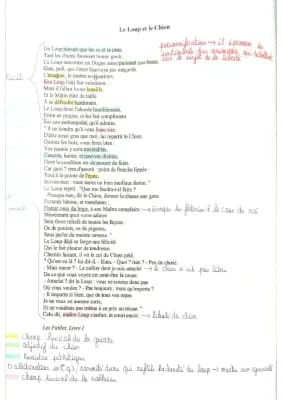 Le Loup et le Chien
personnification → il
Un Loup n'avait que les os et la peau,
Tant les chiens faisaient bonne garde.
Ce Loup rencontre un Dogue aussi puissant que beau,
Gras, poli, qui s'était fourvoyé par mégarde.
L'attaquer, le mettre en quartiers,
Sire Loup l'eût fait volontiers ;
Mais il fallait livrer bataille,
Et le Mâtin était de taille
A se défendre hardiment.
Le Loup donc l'aborde humblement,
Entre en propos, et lui fait compliment
Sur son embonpoint, qu'il admire.
" Il ne tiendra qu'à vous beau sire,
D'être aussi gras que moi, lui repartit le Chien.
Quittez les bois, vous ferez bien :
Vos pareils y sont misérables,
Cancres, haires, et pauvres diables,
Dont la condition est de mourir de faim.
Car quoi ? rien d'assuré : point de franche lippée :
Tout à la pointe de l'épée.
Suivez-moi : vous aurez un bien meilleur destin. "
Le Loup reprit : "Que me faudra-t-il faire ?
- Presque rien, dit le Chien, donner la chasse aux gens
Portants bâtons, et mendiants ;
Flatter ceux du logis, à son Maître complaire :
Moyennant quoi votre salaire
Sera force reliefs de toutes les façons :
Os de poulets, os de pigeons,
Sans parler de mainte caresse. "
Le Loup déjà se forge une félicité
Qui le fait pleurer de tendresse.
Chemin faisant, il vit le col du Chien pelé.
" Qu'est-ce là ? lui dit-il. - Rien. - Quoi ? rien ? - Peu de chose.
- Mais encor ? - Le collier dont je suis attaché
→ le chien n'est pas libre
De ce que vous voyez est peut-être la cause.
- Attaché ? dit le Loup : vous ne courez donc pas
Où vous voulez ? - Pas toujours ; mais qu'importe ?
- Il importe si bien, que de tous vos repas
Je ne veux en aucune sorte,
Et ne voudrais pas même à ce prix un trésor. "
Cela dit, maître Loup s'enfuit, et court encor.
Les Fables, Livre I
champ lexical de la guerre
adjectif du chien
champ lexical de la